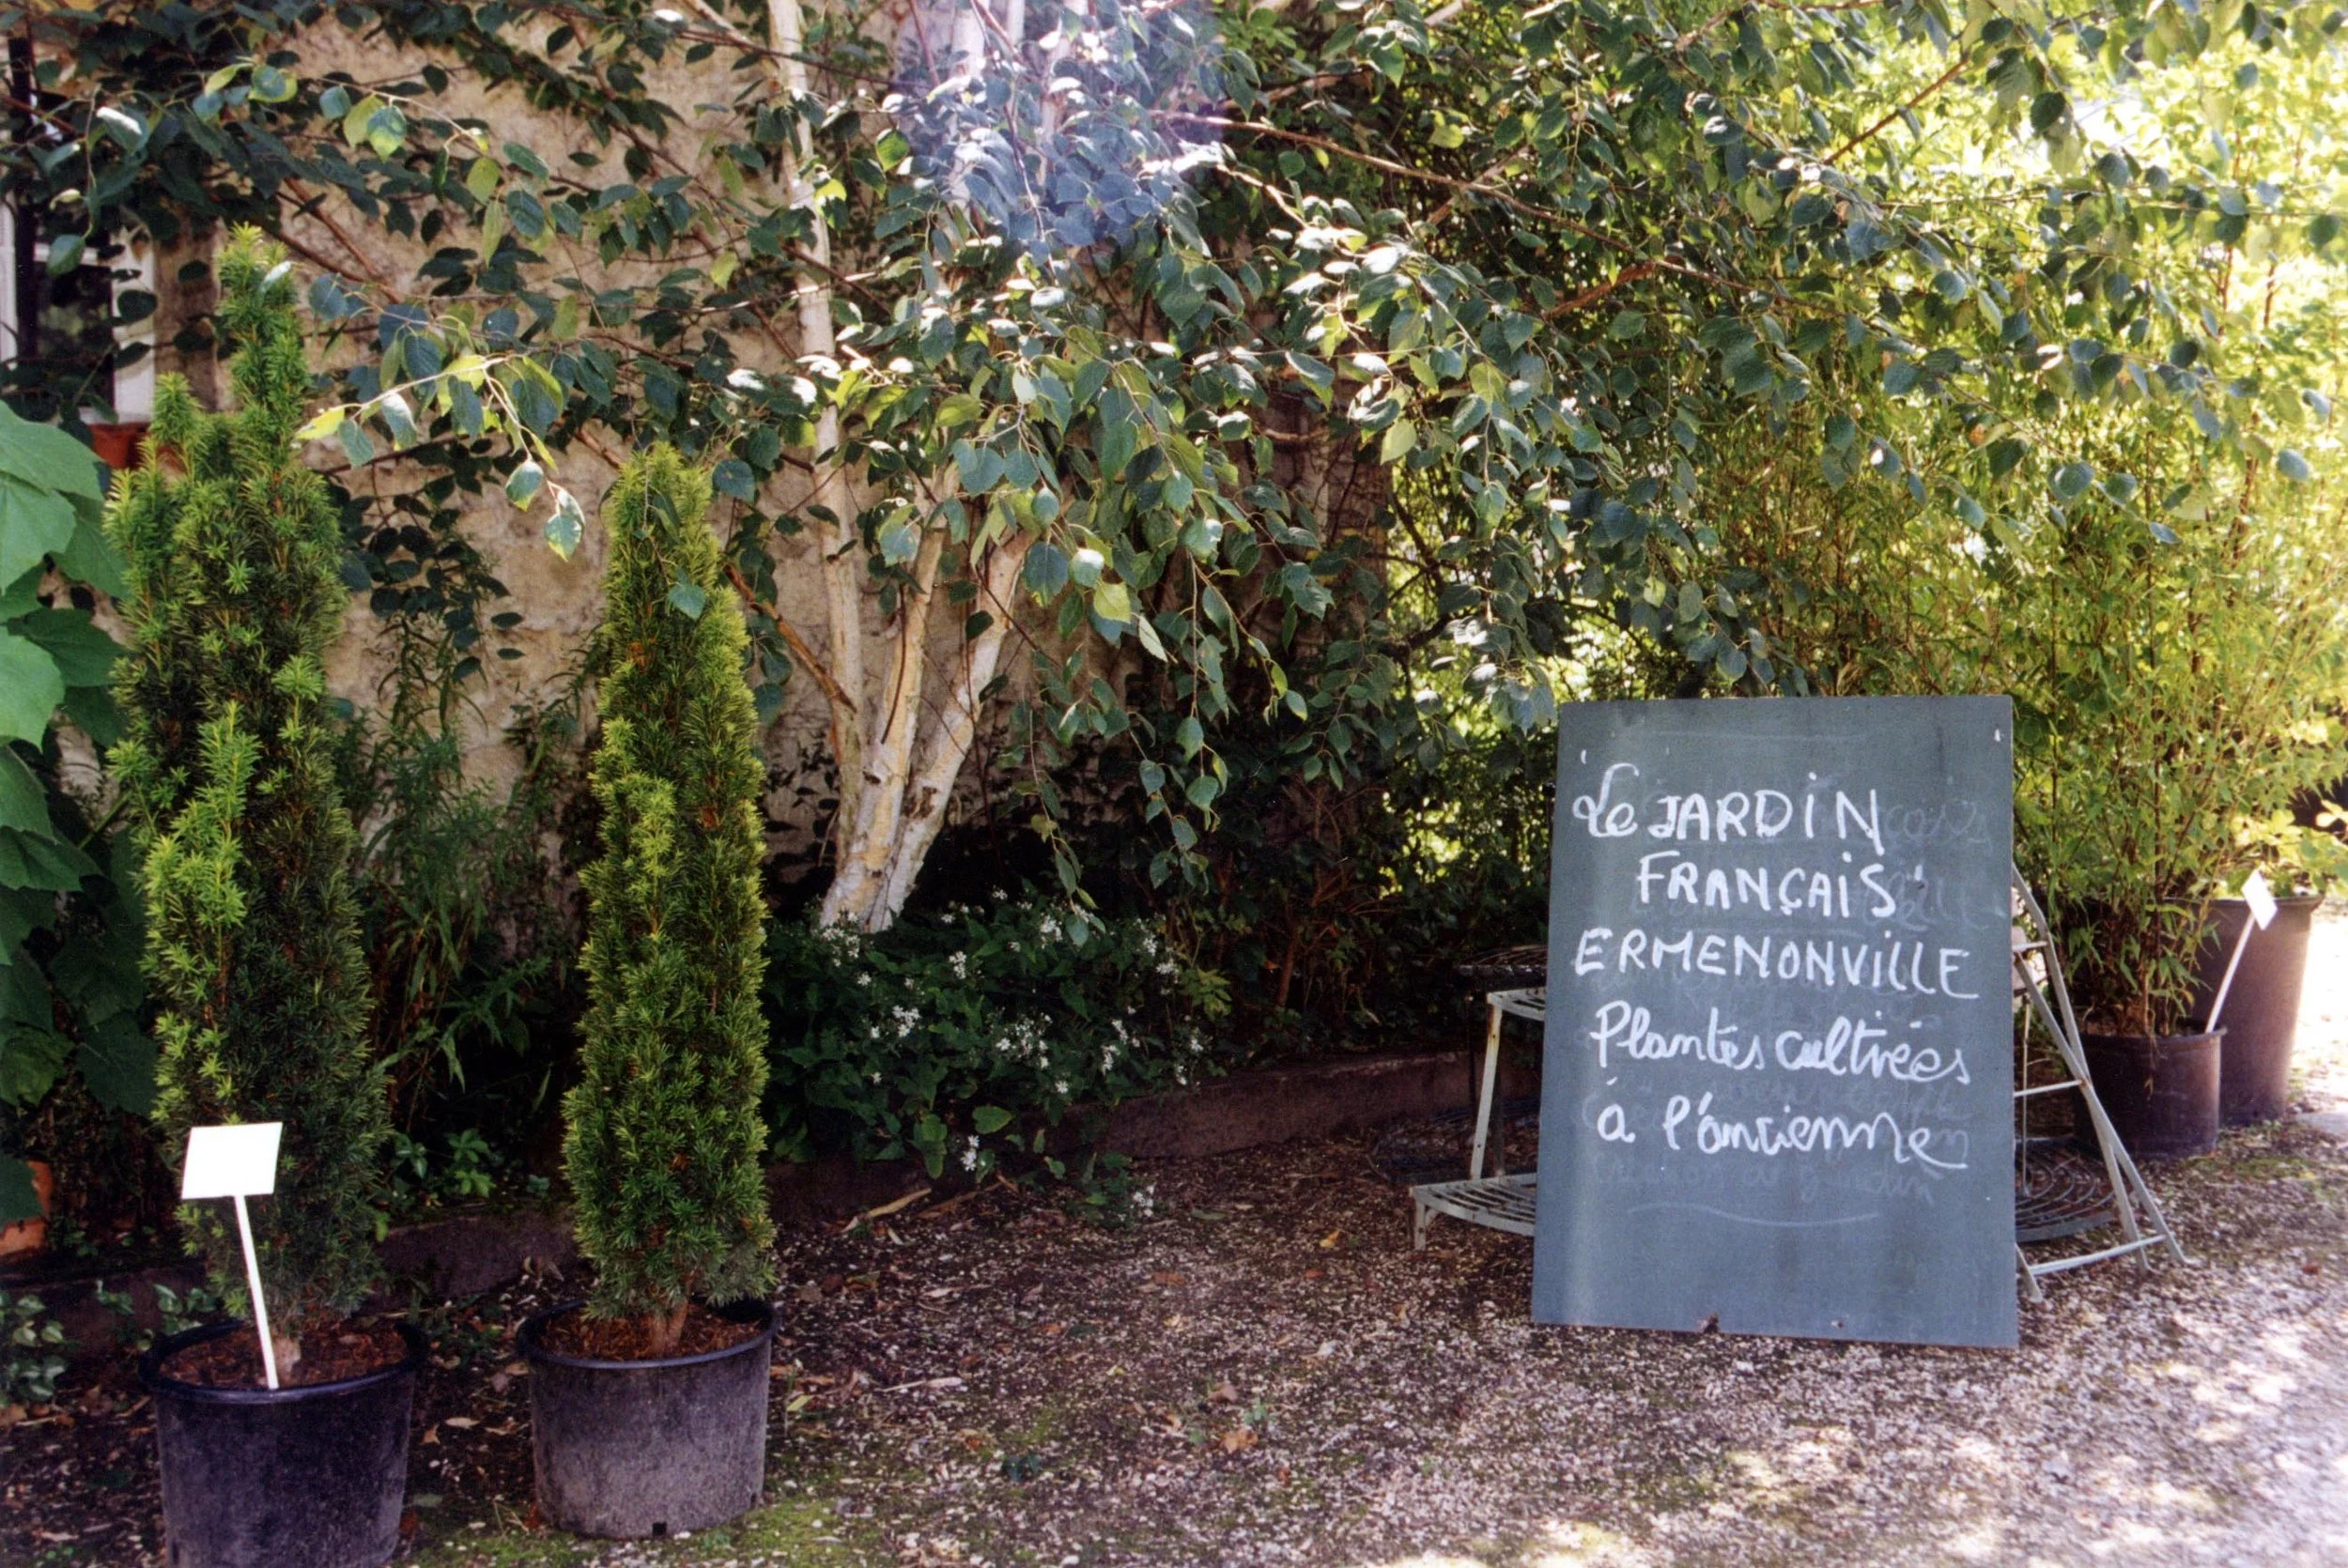 Le JARDiN
FRANÇAiS
ERMENONViLLE
Plantes cultivées
à l'ancienne